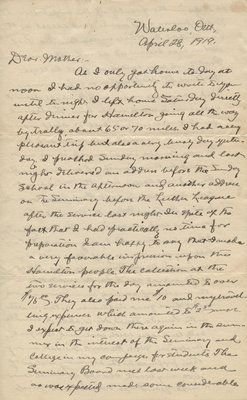 Waterloo, Ont.,
April 28, 1919.
Dear Mother:-
As I only got home to-day at
noon I had no opportunity to write to you
until to-night. I left home Saturday directly
after dinner for Hamilton going all the way
by trolly, about 65 or 70 miles. I had a very
pleasant trip but also a very busy day yester-
day. I preached Sunday morning and last
night delivered an address before the Sunday
School in the afternoon and another address
on the Seminary before the Luther League
after the service last night. In spite of the
fact that I had practically no time for
preparation I am happy to say that I made
a very favorable impression upon the
Hamilton people. The collection at the
two services for the day amounted to over
They also paid me $10 and my travel-
ing expenses which amounted to more.
I expect to get down there again in the sum-
mer in the interest of the Seminary and
College in my canvass for students. The
Seminary Board met last week and
as was expected made some considerable